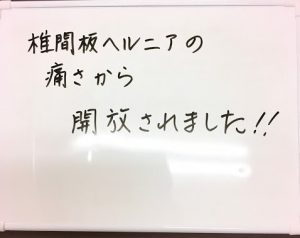 椎間板ヘルニアの
痛さから
開放されました!!